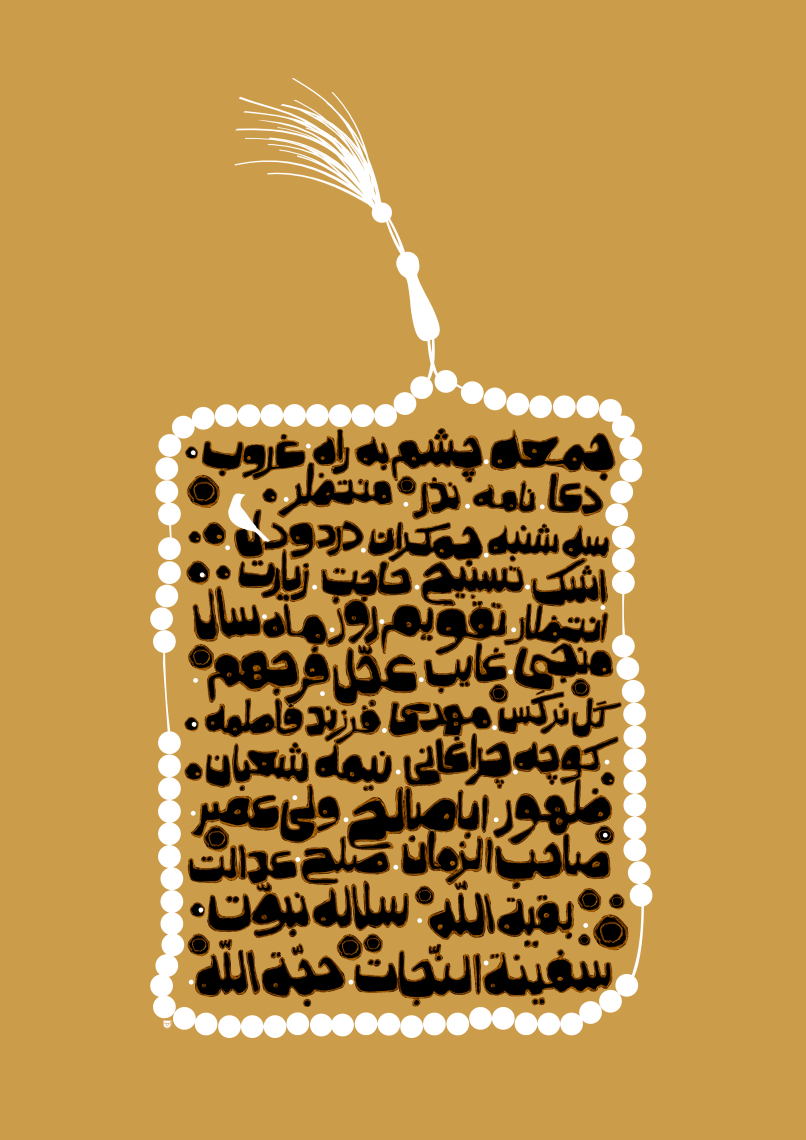 جمعه چشم به راه غروب
دعا نامه نذر منتظر
سه شنبه جمکران درد و دل
اشک تسبیح حاجت زیارت
انتظار تقویم روز ماه سال
منجی غایب عجّل فرجهم
گل نرگس مهدی فرزند فاطمه
کوچه چراغانی نیمه شعبان
ظهور اباصالح ولی عصر
صاحب الزمان صلح عدالت
بقیة اللّه سلاله نبوّت
سفینة النّجات حجّة اللّه